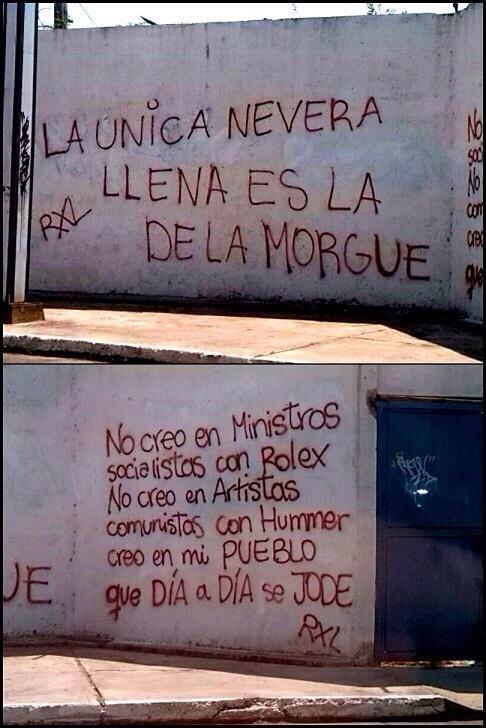 LA UNICA NEVERA
LLENA ES LA
DE LA MORGUE
RXL
No
soc
No
com
creo
que
UE
No creo en Ministros
socialistas con Rolex
No creo en Artistas
comunistas con Hummer
creo en mi PUEBLO
que DÍA a DÍA se JODE
RXL